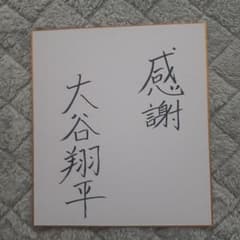 感謝
大谷翔平